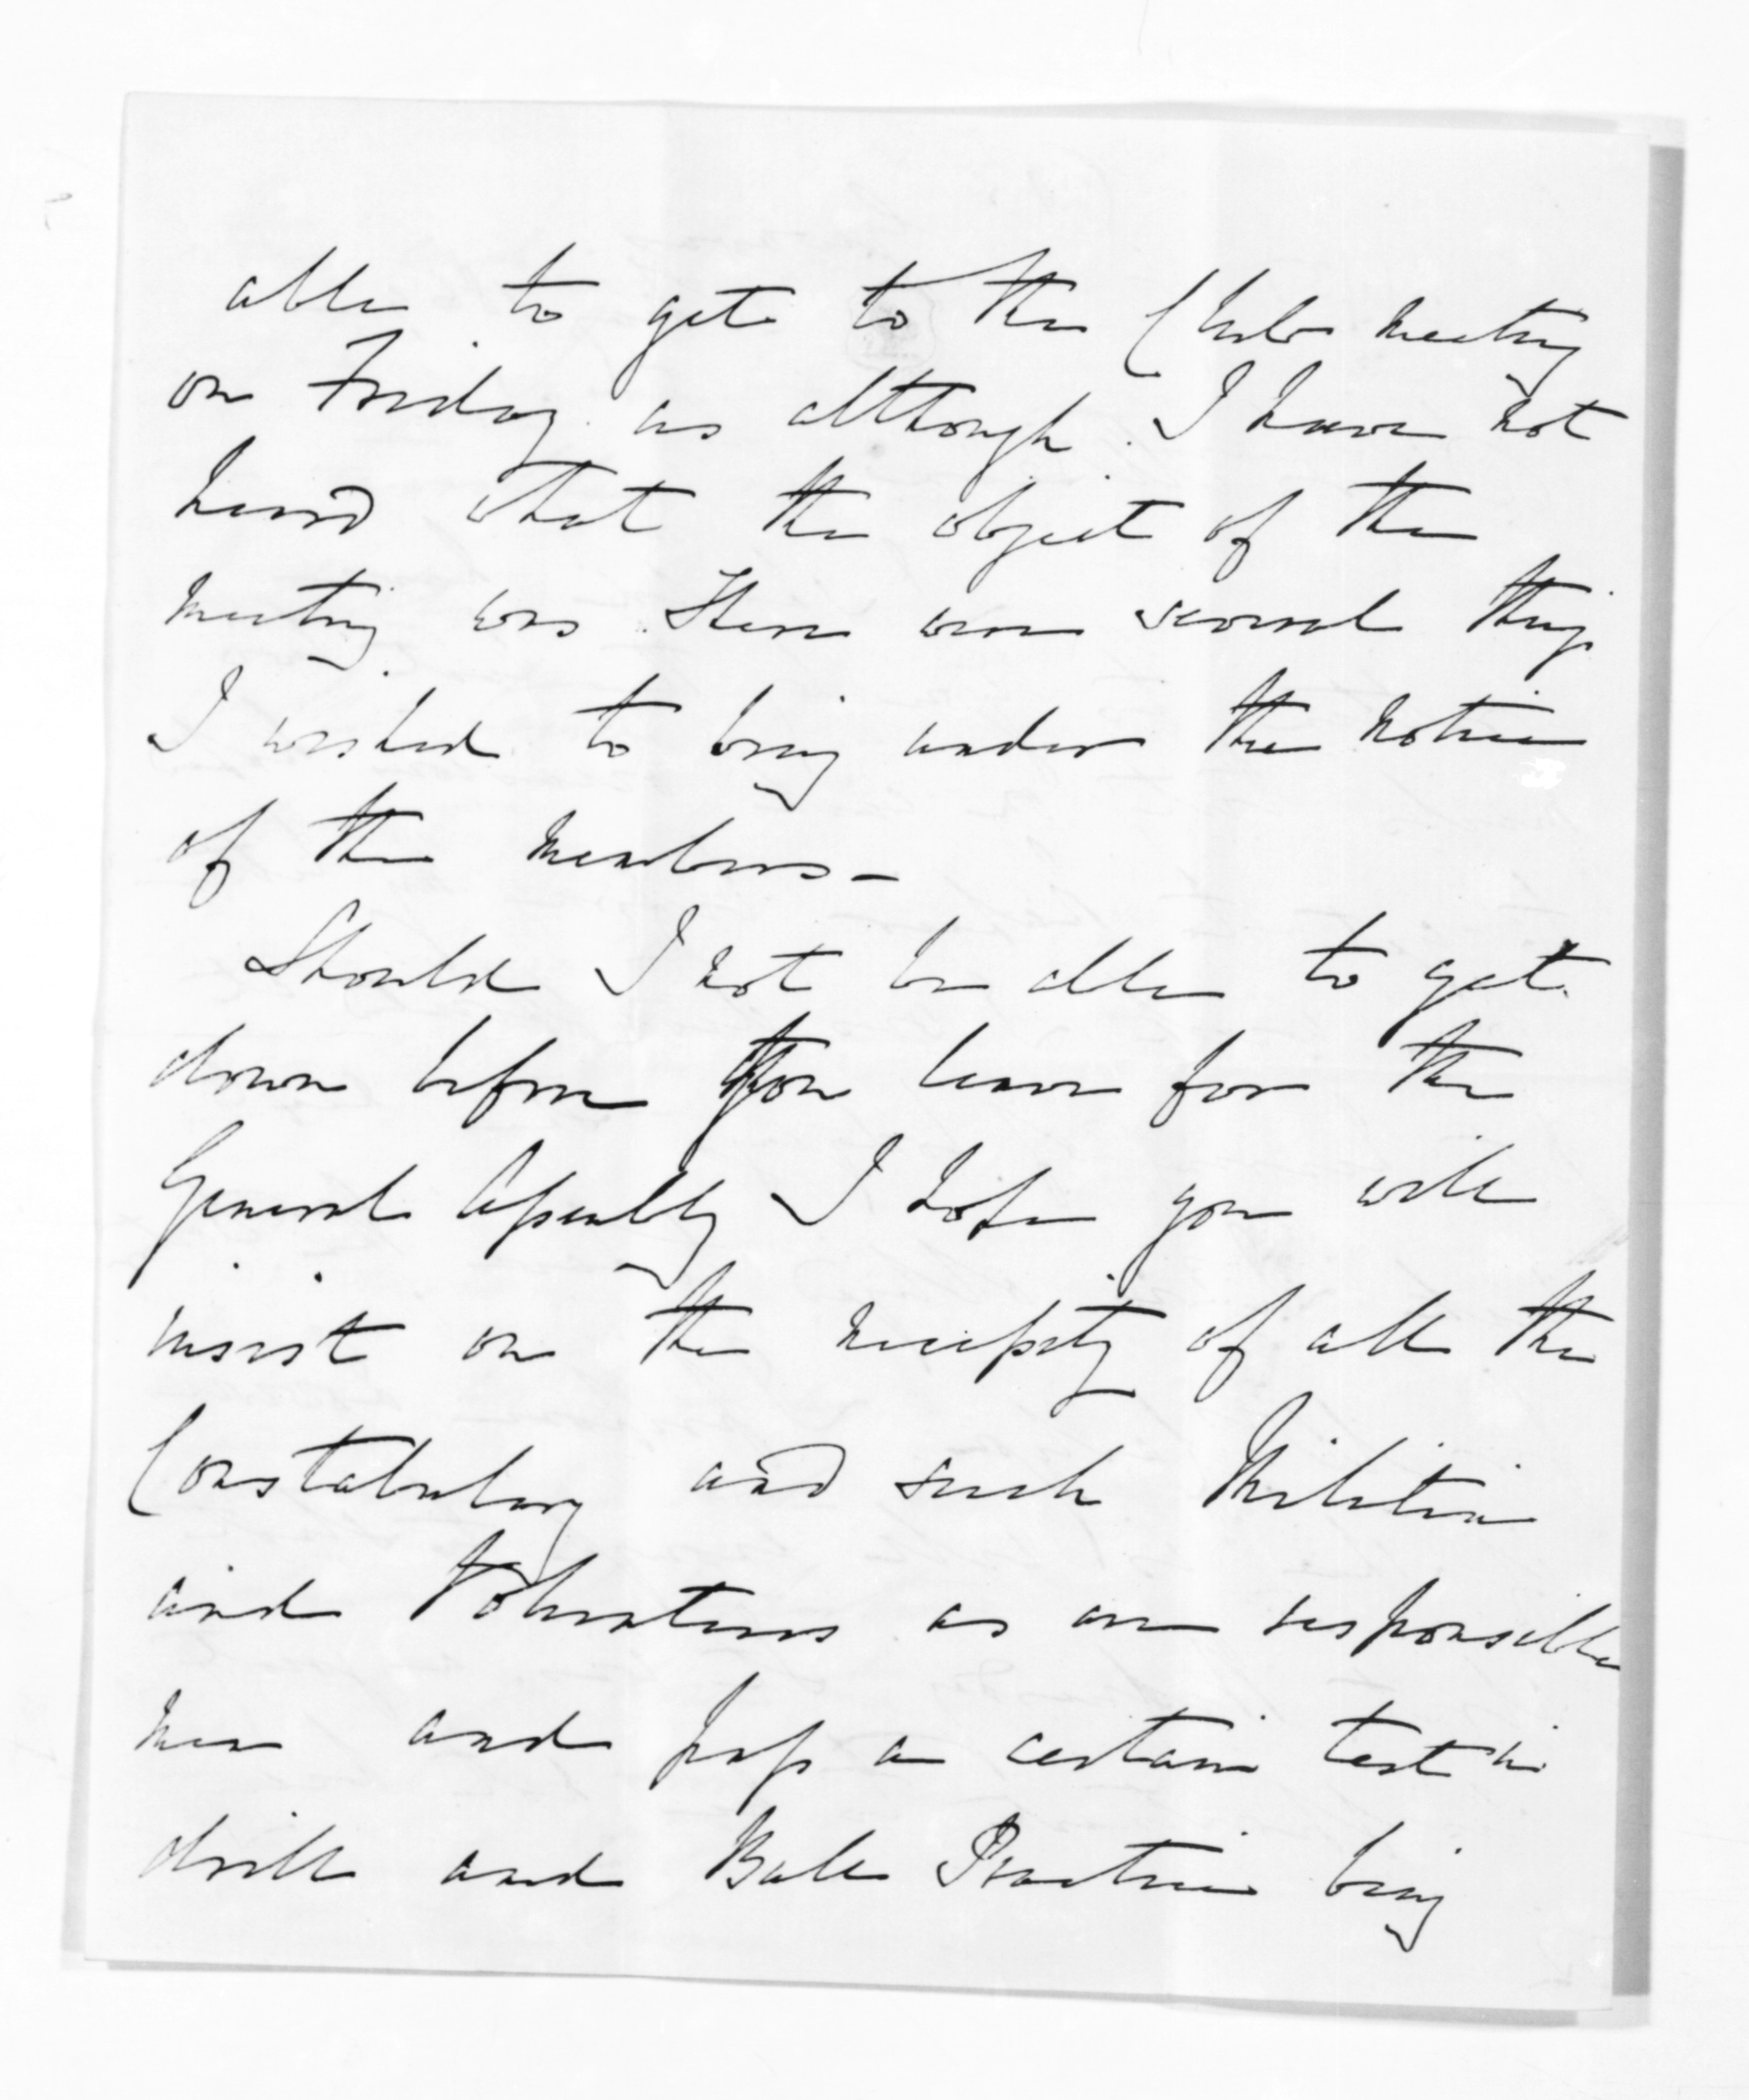 able to get to the Club meeting
on Friday as although I have not
heard what the object of the
meeting was There were several things
I wished to bring under the notice
of the members –
Should I not be able to get
down before you leave for the
General Assembly I hope you will
insist on the necessity of all the
Constabulary and such Militia
and Volunteers as are responsible
men and pass a certain test in
drill and Ball Practice being